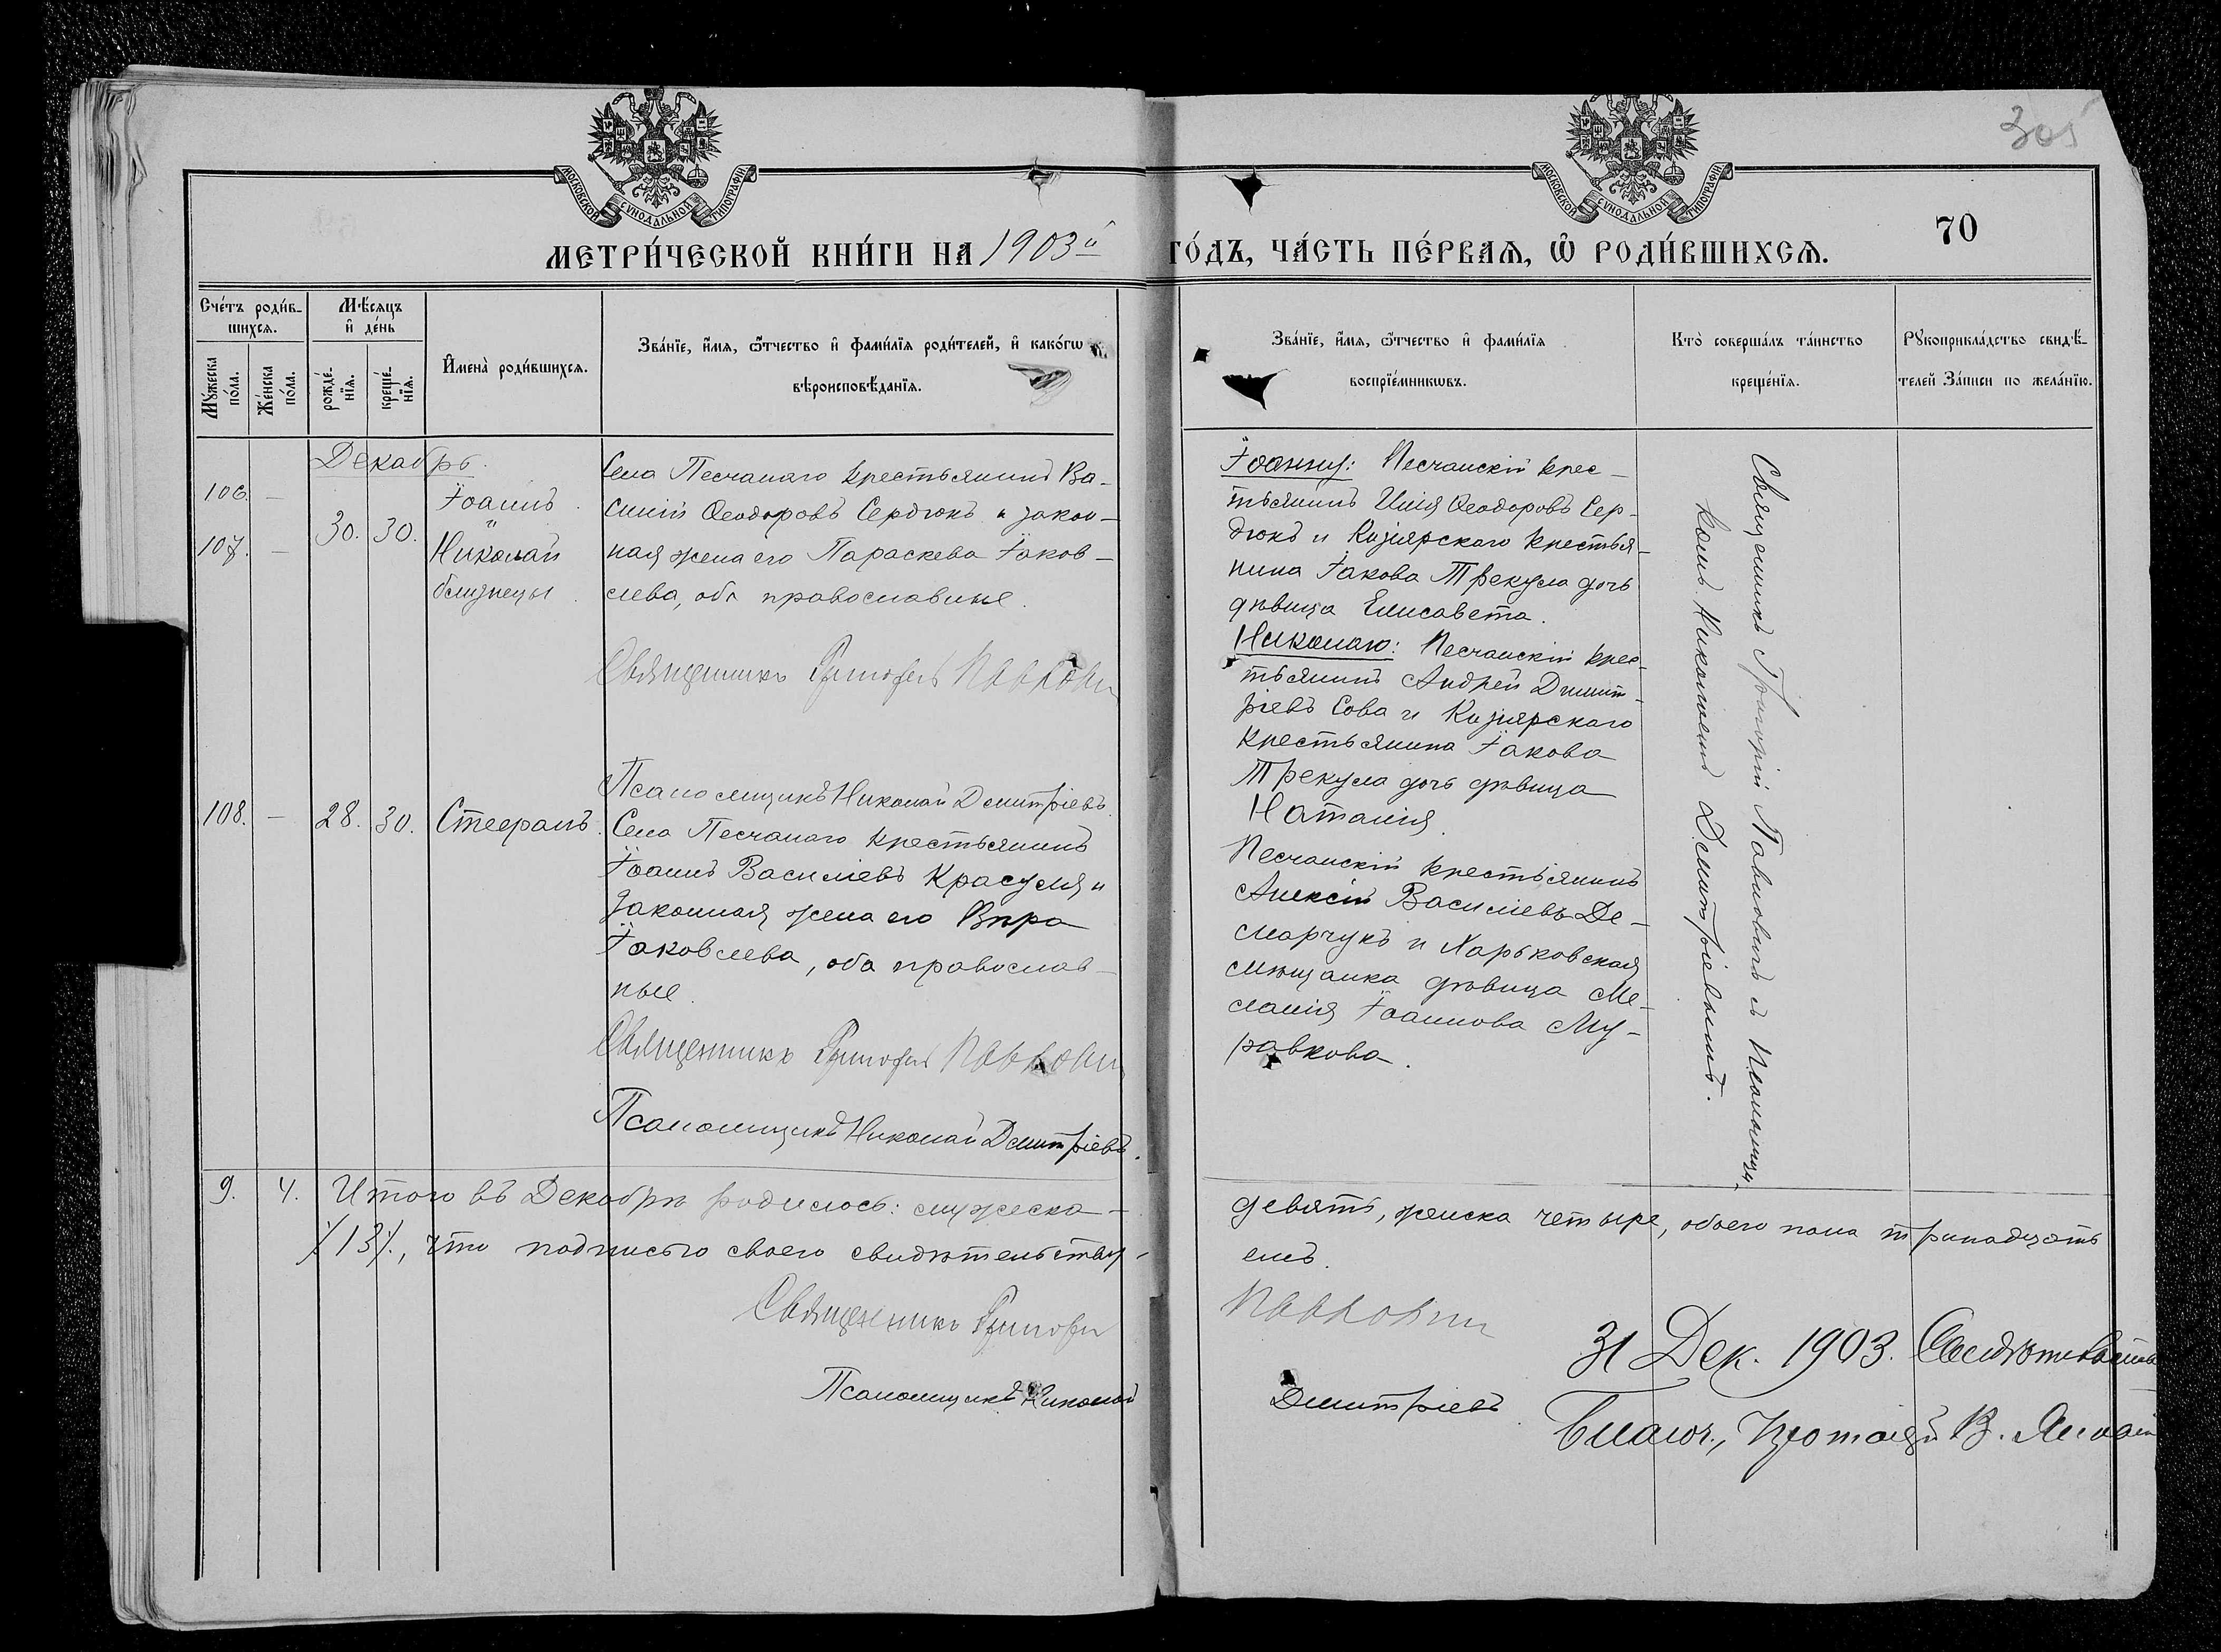 305
МОСКОВСКОЙ СѴНОДАЛЬНОЙ ТИПОГРАФІИ
МОСКОВСКОЙ СѴНОДАЛЬНОЙ ТИПОГРАФІИ
70
МЕТРИ́ЧЕСКОЙ КНИ́ГИ НА 1903й ГО́ДЪ, ЧА́СТЬ ПЕ́РВАѦ, Ѡ҆ РОДИ́ВШИХСѦ.
Сче́тъ роди́в-
шихсѧ.
Мꙋ́жеска
по́ла.
Же́нска
по́ла.
Мѣ́сѧцъ
и҆ де́нь
рожде́-
нїѧ.
креще́-
нїѧ.
И҆мена̀ роди́вшихсѧ.
Зва́нїе, и҆́мѧ, ѻ҆́тчество и҆ фами́лїѧ роди́телей, и҆ како́гѡ
вѣроисповѣ́данїѧ.
Зва́нїе, и҆́мѧ, ѻ҆́тчество и҆ фами́лїѧ
воспрїе́мникѡвъ.
Кто̀ соверша́лъ та́инство
креще́нїѧ.
Рꙋкоприкла́дство свидѣ́-
телей За́писи по жела́нїю.
Декабрь.
106. —
107. —
30. 30.
Іоаннъ
и
Николай
близнецы
Села Песчанаго крестьянинъ Ва-
силій Ѳеодоровъ Сердюкъ и закон-
ная жена его Параскева Іаков-
лева, оба православные.
Священникъ Григорій Павловичъ
Псаломщикъ Николай Дмитріевъ.
Іоанну: Песчанскій крес-
тьянинъ Илія Ѳеодоровъ Сер-
дюкъ и Козіярскаго крестья-
нина Іакова Трекула дочь
дѣвица Елисавета.
Николаю: Песчанскій крес-
тьянинъ Андрей Димит-
ріевъ Сова и Козіярскаго
крестьянина Іакова
Трекула дочь дѣвица
Наталія.
Священникъ Григорій Павловичъ съ Псаломщи-
комъ Николаемъ Дмитріевымъ.
108. — 28. 30. Стефанъ.
Села Песчанаго крестьянинъ
Іоаннъ Василіевъ Красуля и
законная жена его Вѣра
Іаковлева, оба православ-
ные.
Священникъ Григорій Павловичъ
Псаломщикъ Николай Дмитріевъ.
Песчанскій крестьянинъ
Алексій Василіевъ Де-
марчукъ и Харьковская
мѣщанка дѣвица Ме-
ланія Іоаннова Му-
равкова.
9. 4. Итого въ Декабрѣ родилось: мужеска - девять, женска четыре, обоего пола тринадцать
/13/, что подписью своею свидѣтельству- емъ.
Священникъ Григорій Павловичъ
Псаломщикъ Николай Дмитріевъ
31 Дек. 1903.
Благоч., Протоіерей В.